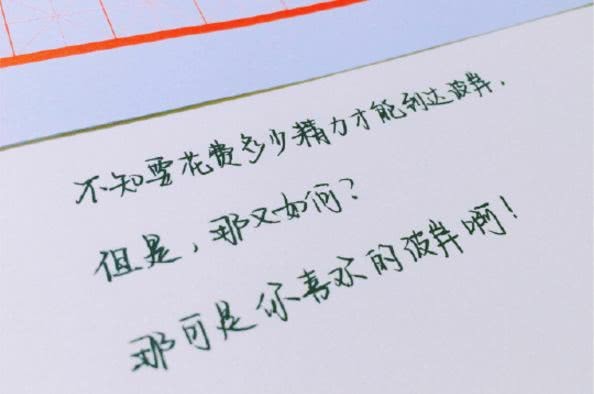 不知要花费多少精力才能到达彼岸.
但是，那又如何？
那可是你喜欢的彼岸啊！